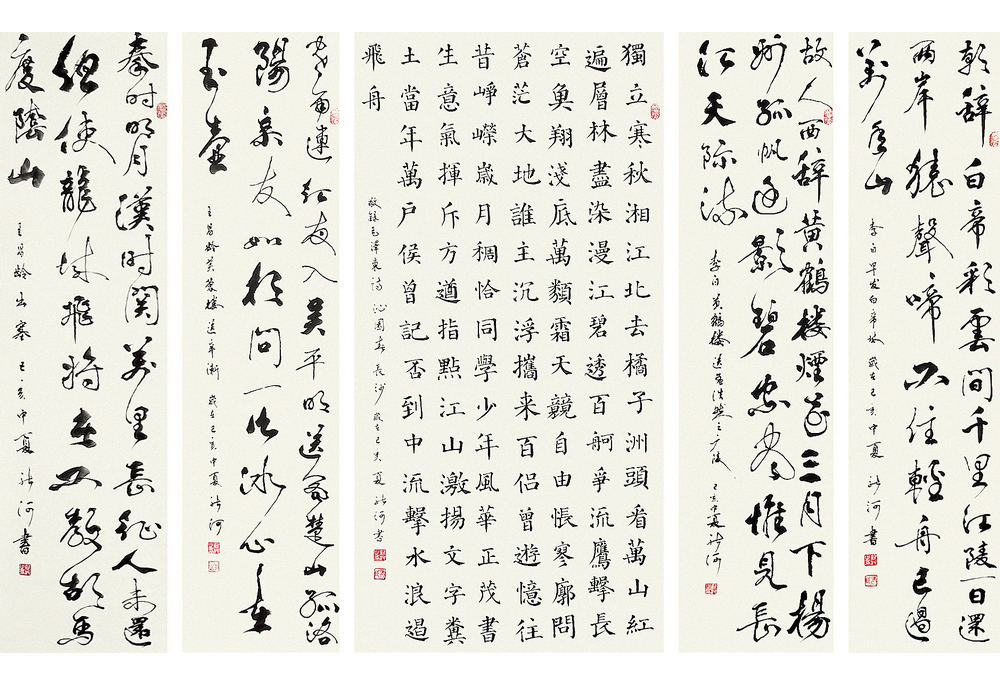 朝辞白帝彩雲間千里江陵一日還
兩岸猿聲啼不住輕舟已過
萬重山
李白早发白帝城 歲在己亥中夏 河書
故人西辞黄鶴楼煙花三月下楊
州孤帆远影碧空尽惟見長
江天际流
李白黄鶴楼送孟浩然之广陵 己亥中夏 河
獨立寒秋湘江北去橘子洲頭看萬山紅
遍層林盡染漫江碧透百舸爭流鷹擊長
空魚翔淺底萬類霜天競自由悵寒廓問
蒼茫大地誰主沉浮攜来百侣曾遊憶往
昔崢嶸嵗月稠恰同學少年風華正茂書
生意氣揮斥方遒指點江山激揚文字糞
土當年萬戶侯曾記否到中流擊水浪遏
飛舟
敬録毛澤東詩 沁園春 長沙 歲在己亥夏 河書
寒雨連江夜入吴平明送客楚山孤洛
陽亲友如相問一片冰心在
玉壺
王昌齡芙蓉楼送辛漸 歲在己亥中夏 河书
秦时明月漢时関萬里長征人未還
但使龍城飛将在不教胡馬
度陰山
王昌齡出塞 己亥中夏 河書